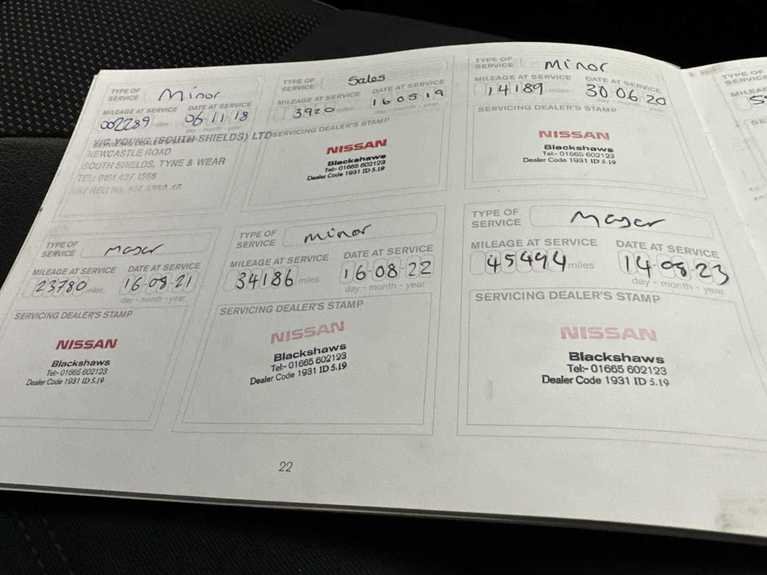 TYPE OF SERVICE Minor
MILEAGE AT SERVICE DATE AT SERVICE
002289 miles 06-11-18
day - month - year
SERVICING DEALER'S STAMP
(SOUTH SHIELDS) LTD
NEWCASTLE ROAD
SOUTH SHIELDS, TYNE & WEAR
TYPE OF SERVICE Sales
MILEAGE AT SERVICE DATE AT SERVICE
3920 miles 16 05 19
day - month - year
SERVICING DEALER'S STAMP
NISSAN
Blackshaws
Tel:- 01665 602123
Dealer Code 1931 ID 5.19
TYPE OF SERVICE Minor
MILEAGE AT SERVICE DATE AT SERVICE
14189 miles 30.06.20
day - month - year
SERVICING DEALER'S STAMP
NISSAN
Blackshaws
Tel:- 01665 602123
Dealer Code 1931 ID 5.19
TYPE OF SERVICE Major
MILEAGE AT SERVICE DATE AT SERVICE
23780 miles 16-08-21
day - month - year
SERVICING DEALER'S STAMP
NISSAN
Blackshaws
Tel:- 01665 602123
Dealer Code 1931 ID 5.19
TYPE OF SERVICE Minor
MILEAGE AT SERVICE DATE AT SERVICE
34186 miles 16-08-22
day - month - year
SERVICING DEALER'S STAMP
NISSAN
Blackshaws
Tel:- 01665 602123
Dealer Code 1931 ID 5.19
TYPE OF SERVICE Major
MILEAGE AT SERVICE DATE AT SERVICE
45494 miles 14-08-23
day - month - year
SERVICING DEALER'S STAMP
NISSAN
Blackshaws
Tel:- 01665 602123
Dealer Code 1931 ID 5.19
22